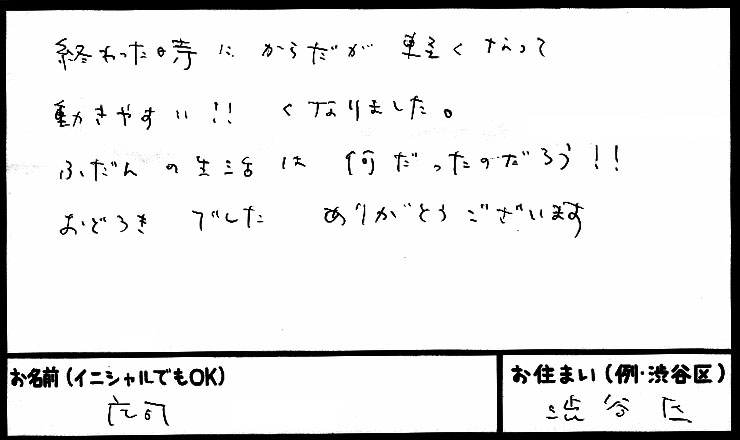 終わった時に からだが 軽くなって
動きやすい!! くなりました。
ふだんの生活は 何だったのだろう!!
おどろき でした ありがとうございます
お名前(イニシャルでもOK)
お住まい(例・渋谷区)
渋谷区